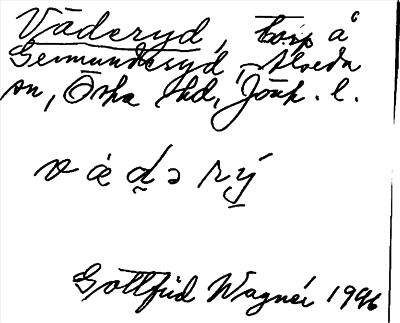 Väderyd, torp å
Germunderyd, Alseda
sn, Östra hd, Jönk. l.
v ä d ə r ý
Gottfrid Wagnér 1996